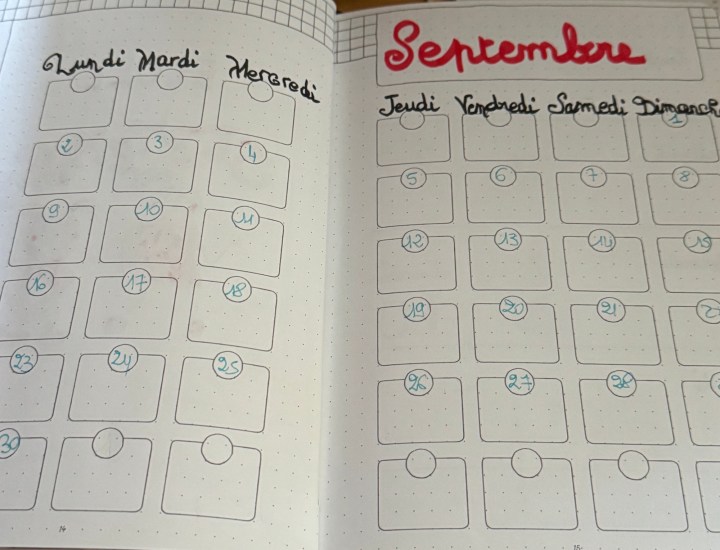 Septembre
Lundi Mardi Mercredi Jeudi Vendredi Samedi Dimanch
1
2 3 4 5 6 7 8
9 10 11 12 13 14 15
16 17 18 19 20 21
23 24 25 26 27 28
30
14 15